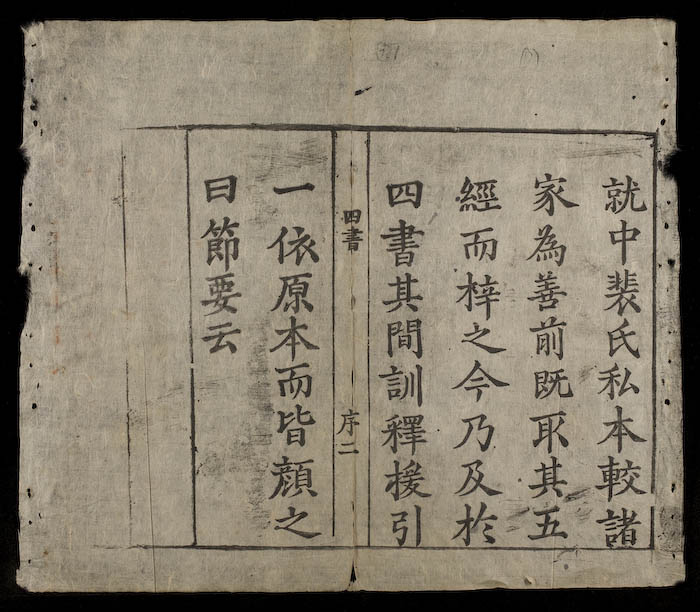 就中裴氏私本較諸
家為善前既取其五
經而梓之今乃及於
四書其間訓釋援引
四書
序二
一依原本而皆顔之
曰節要云